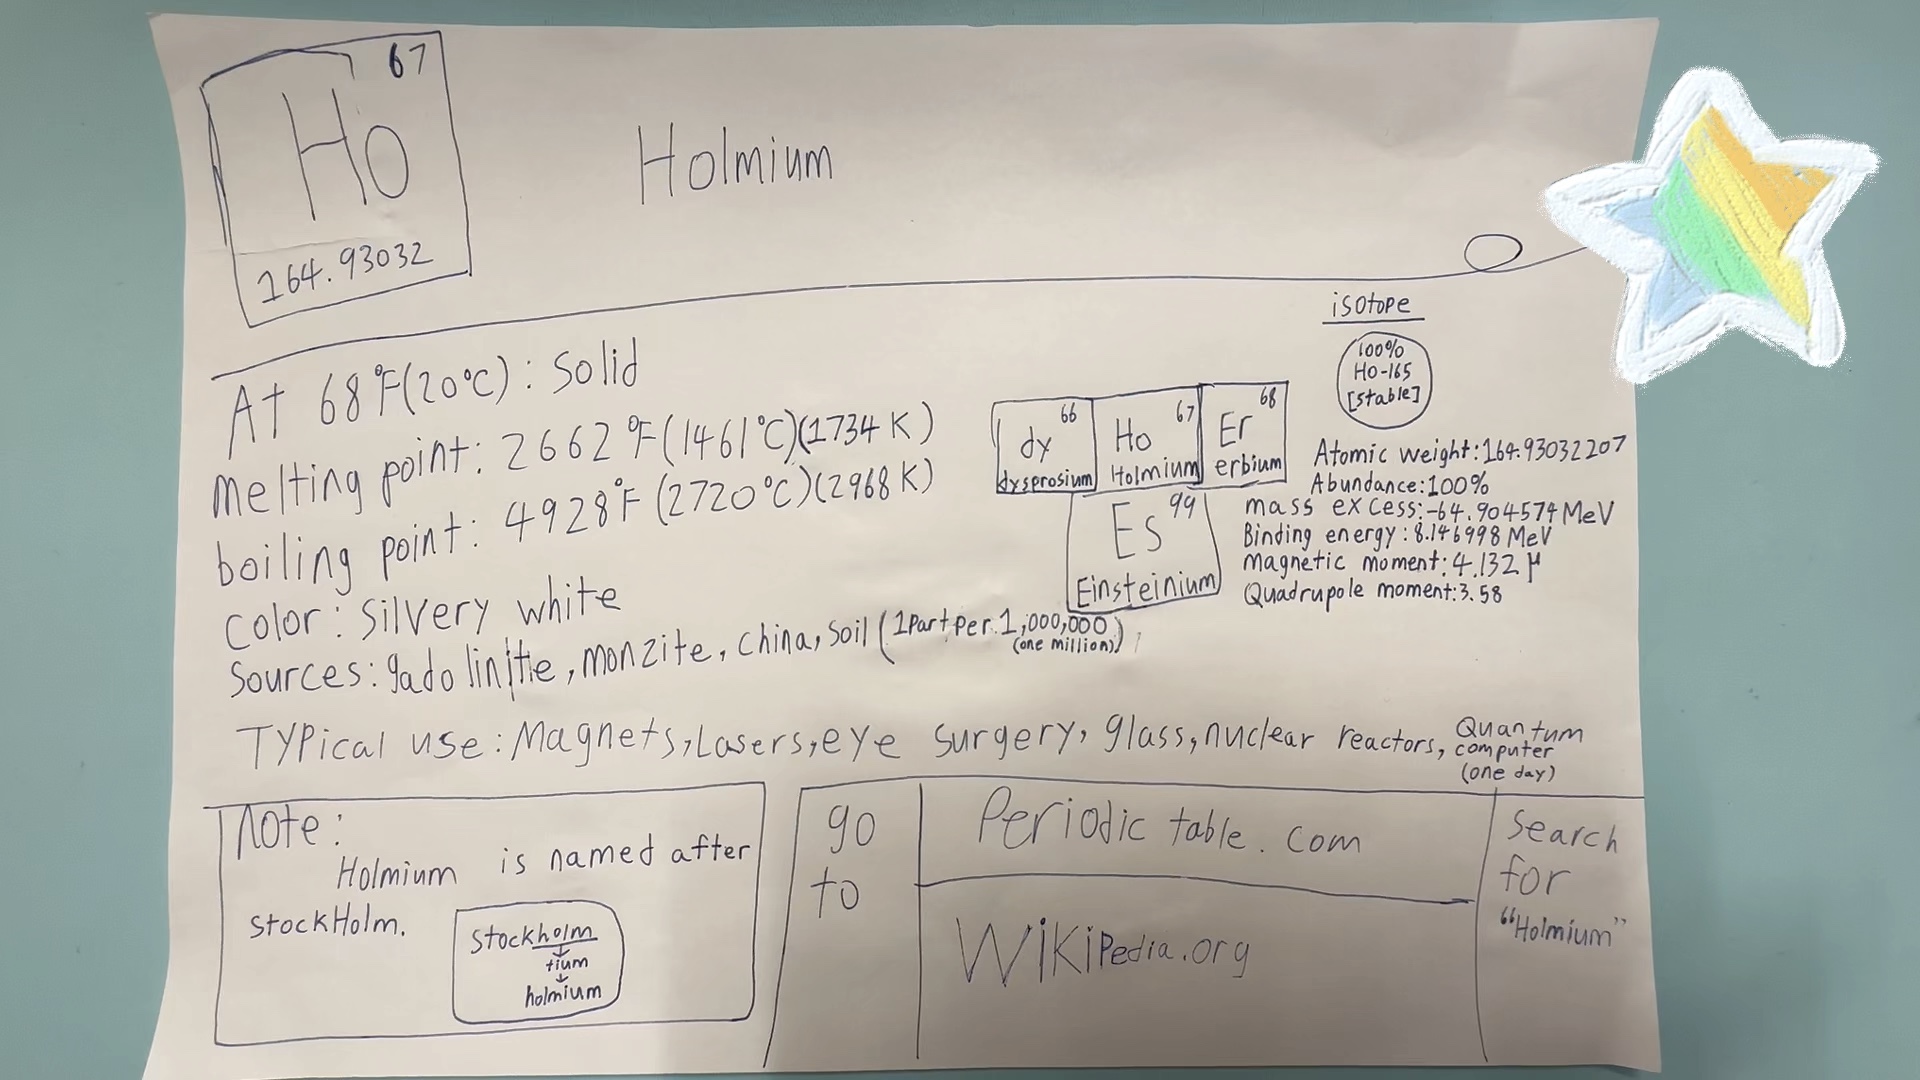 67
Ho
164.93032
Holmium
At 68°F(20°C): solid
melting point: 2662°F(1461°C)(1734 K)
boiling point: 4928°F(2720°C)(2968 K)
color: silvery white
Sources: gadolinitie, monzite, china, soil (1 Part per 1,000,000
(one million))
isotope
100%
Ho-165
[stable]
66
dy
dysprosium
67
Ho
Holmium
68
Er
erbium
99
Es
Einsteinium
Atomic weight: 164.93032207
Abundance: 100%
mass excess: -64.904574 MeV
Binding energy: 8.146998 MeV
Magnetic moment: 4.132 μ
Quadrupole moment: 3.58
Typical use: Magnets, Lasers, eye surgery, glass, nuclear reactors, Quantum
computer
(one day)
note:
Holmium is named after
stockHolm.
stockholm
↓
tium
↓
holmium
go
to
Periodic table.com
WikiPedia.org
Search
for
"Holmium"